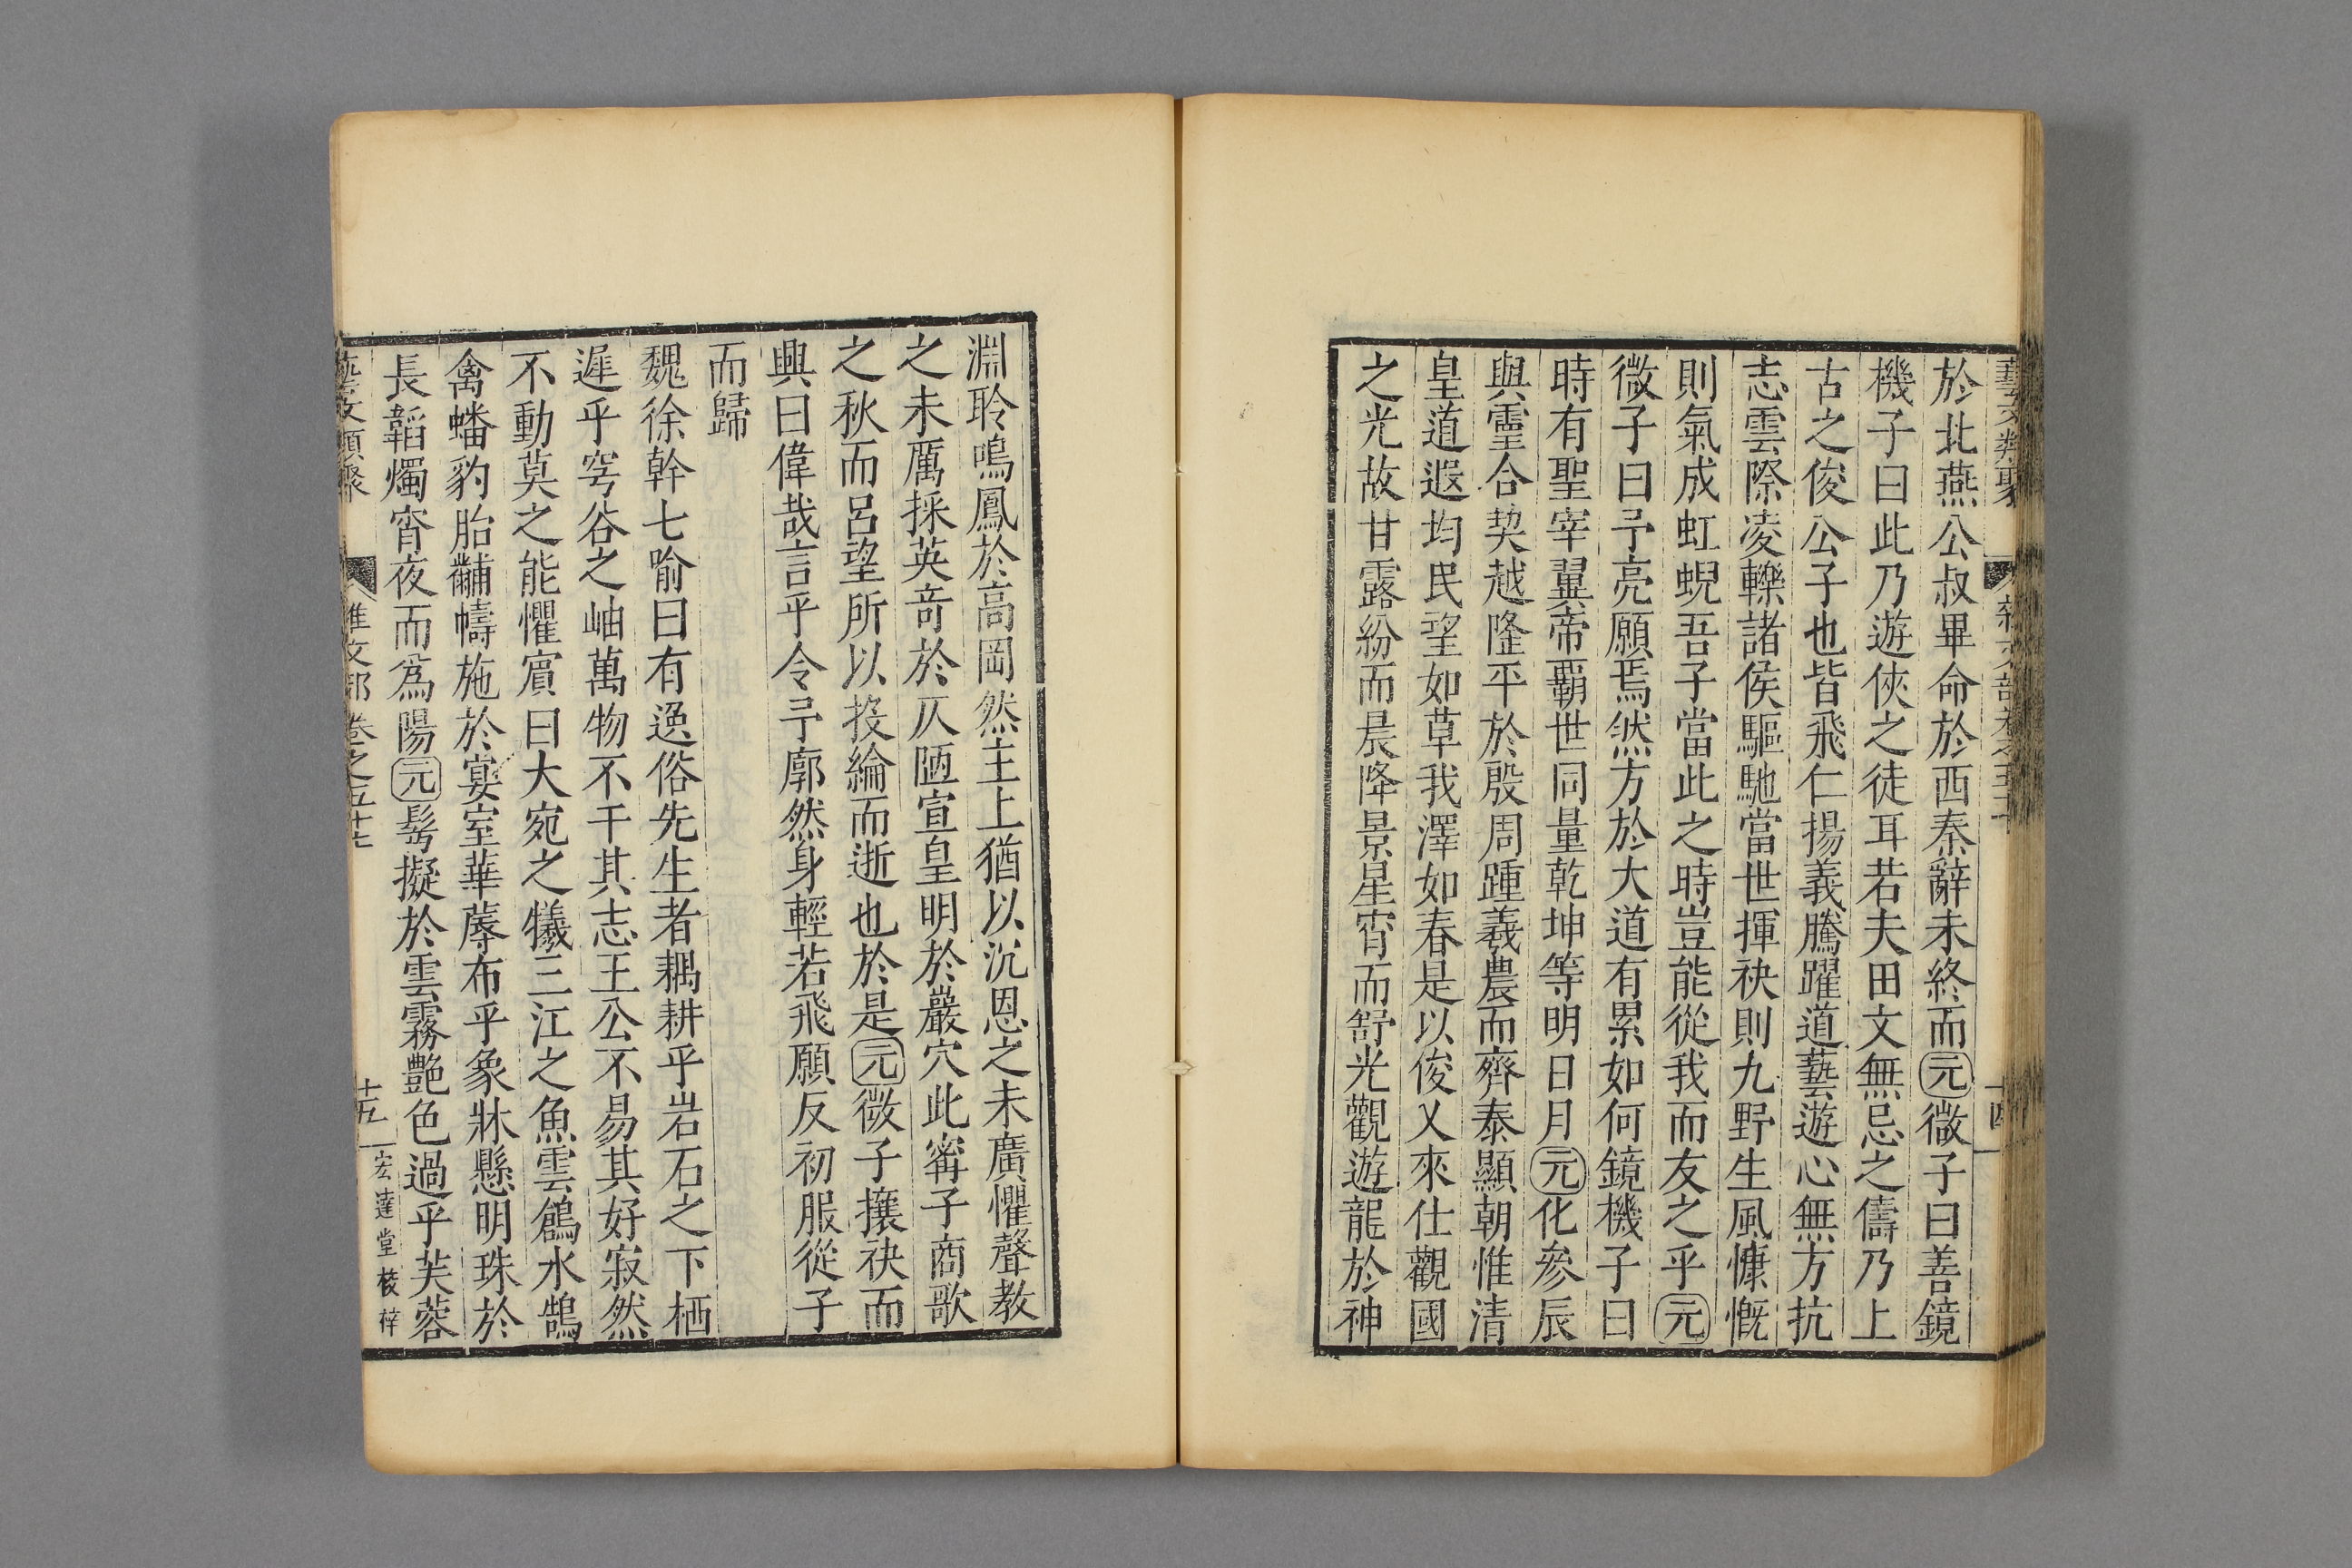 於北燕公叔畢命於西秦辭未終而元微子曰善鏡
機子曰此乃遊俠之徒耳若夫田文無忌之儔乃上
古之俊公子也皆飛仁揚義騰躍道藝遊心無方抗
志雲際凌轢諸侯驅馳當世揮袂則九野生風慷慨
則氣成虹蜺吾子當此之時豈能從我而友之乎元
微子曰予亮願焉然方於大道有累如何鏡機子曰
時有聖宰翼帝覇世同量乾坤等明日月元化參辰
與靈合契越隆平於殷周踵羲農而齊泰顯朝惟清
皇道遐均民望如草我澤如春是以俊乂來仕觀國
之光故甘露紛而晨降景星宵而舒光觀遊龍於神
淵聆鳴鳳於高岡然主上猶以沉恩之未廣懼聲教
之未厲採英奇於仄陋宣皇明於巖穴此寗子商歌
之秋而呂望所以投綸而逝也於是元微子攘袂而
興曰偉哉言乎令予廓然身輕若飛願反初服從子
而歸
魏徐幹七喻曰有逸俗先生者耦耕乎岩石之下栖
遲乎穹谷之岫萬物不干其志王公不易其好寂然
不動莫之能懼賓曰大宛之犧三江之魚雲鶬水鵠
禽蟠豹胎黼幬施於宴室華蓐布乎象牀懸明珠於
長韜燭宵夜而爲陽元髩擬於雲霧艷色過乎芙蓉
藝文類聚 雜文部卷之五十七 十五 宏達堂梭梓